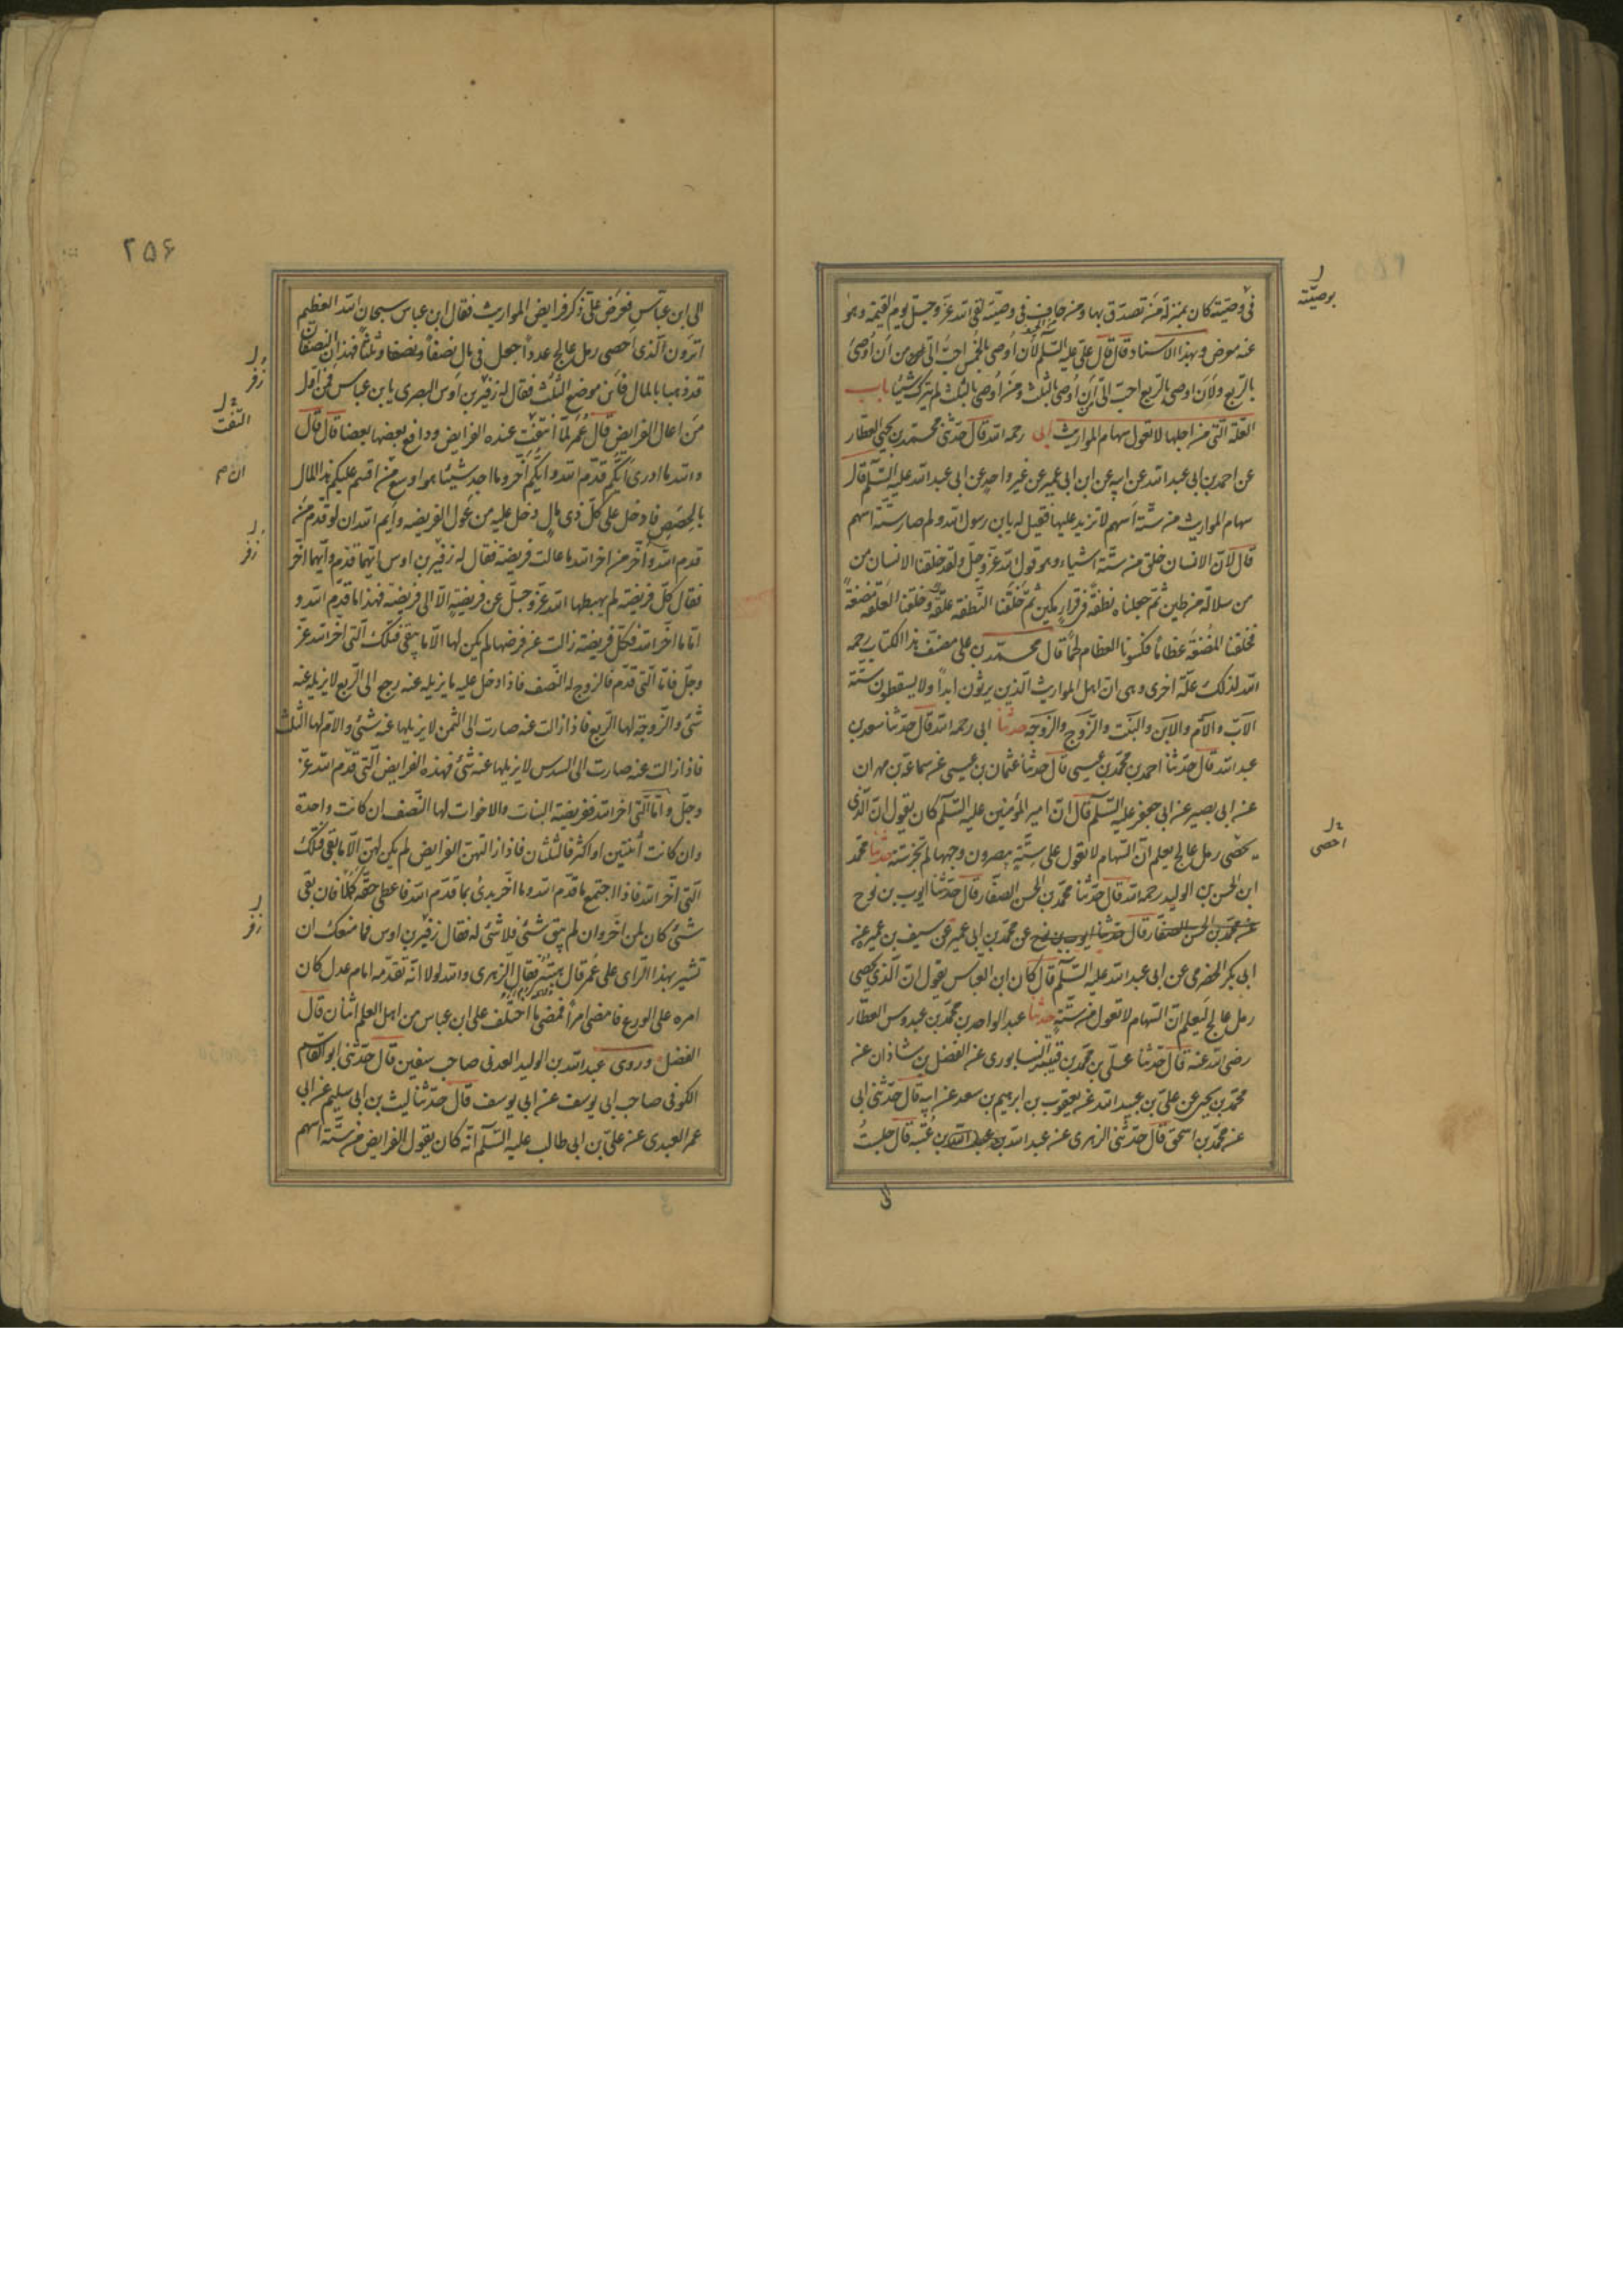 فى وصيته كان بمنزلة من تصدق بها ومن جاف فى وصيته لقى الله عز وجل يوم القيمة وهو
بوصيته
عنه معرض وبهذا الاسناد قال قال على عليه السلم لان أوصى بالخمس احب الى من ان أوصى
بالربع ولان اوصى بالربع احب الى من ان أوصى بالثلث ومن أوصى بالثلث لم يترك شيئا باب
العلة التى من اجلها لا تعول سهام المواريث ابى رحمه الله قال حدثنى محمد بن يحيى العطار
عن احمد بن ابى عبد الله عن ابيه عن ابن ابى عمير عن غير واحد عن ابى عبد الله عليه السلم قال
سهام المواريث من ستة اسهم لا تزيد عليها فقيل له يابن رسول الله ولم صارت ستة اسهم
قال لان الانسان خلق من ستة اشياء وهو قول الله عز وجل ولقد خلقنا الانسان من
من سلالة من طين ثم جعلناه نطفة فى قرار مكين ثم خلقنا النطفة علقة وخلقنا العلقة مضغة
فخلقنا المضغة عظاما فكسونا العظام لحما قال محمد بن على مصنف هذا الكتاب رحمه
الله لذلك علة اخرى وهى ان اهل المواريث الذين يرثون ابدا ولا يسقطون ستة
الاب والام والابن والبنت والزوج والزوجه حدثنا ابى رحمه الله قال حدثنا سعد بن
عبد الله قال حدثنا احمد بن محمد بن عيسى قال حدثنا عثمان بن عيسى عن سماعة بن مهران
عن ابى بصير عن ابى جعفر عليه السلم قال ان امير المؤمنين عليه السلم كان يقول ان الذى
يحصى رمل عالج يعلم ان السهام لا تعول على ستة يبصرون وجهها لم تجز ستة حدثنا محمد
احصى
ابن الحسن بن الوليد رحمه الله قال حدثنا محمد بن الحسن الصفار قال حدثنا ايوب بن نوح
عن محمد بن الحسن الصفار قال حدثنا ايوب بن نوح عن محمد بن ابى عمير عن سيف بن عميره عن
ابى بكر الحضرمى عن ابى عبد الله عليه السلم قال كان ابن العباس يقول ان الذى يحصى
رمل عالج ليعلم ان السهام لا تعول من ستة حدثنا عبد الواحد بن محمد بن عبدوس العطار
رضى الله عنه قال حدثنا على بن محمد بن قتيبة النيسابورى عن الفضل بن شاذان عن
محمد بن يحيى عن على بن عبد الله عن يعقوب بن ابرهيم بن سعد عن ابيه قال حدثنى ابى
عن محمد بن اسحق قال حدثنى الزهرى عن عبد الله بن عبد الله بن عتبة قال جلست
٢٥۶
الى ابن عباس فعرض على ذكر فرايض المواريث فقال ابن عباس سبحان الله العظيم
اترون الذى احصى رمل عالج عددا جعل فى مال نصفا ونصفا وثلثا فهذان النصفان
زفر
قد ذهبا بالمال فاين موضع الثلث فقال له زفير بن اوس البصرى يابن عباس فمن اول
من اعال الفرايض قال عمر لما عنده الفرايض ودافع بعضها بعضا قال قال
التفت
والله ما ادرى ايكم قدم الله وايكم اخر وما اجد شيئا هو اوسع من اقسم عليكم هذا المال
ان م
بالحصص فادخل على كل ذى مال دخل عليه من عول الفريضه وايم الله ان لو قدم من
قدم الله واخر من اخر الله ما عالت فريضة فقال له زفير بن اوس ايهما قدم وايهما اخر
زفر
فقال كل فريضة لم يهبطها الله عز وجل عن فريضة الا الى فريضة فهذا ما قدم الله و
اما ما اخر الله فكل فريضة زالت عن فرضها لم يكن لها الا ما يبقى فتلك التى اخر الله عز
وجل فاما التى قدم فالزوج له النصف فاذا دخل عليه ما يزيله عنه رجع الى الربع لا يزيله عنه
شئ والزوجة لها الربع فاذا زالت عنه صارت الى الثمن لا يزيلها عنه شئ والام لها الثلث
فاذا زالت عنه صارت الى السدس لا يزيلها عنه شئ فهذه الفرايض التى قدم الله عز
وجل واما التى اخر الله ففريضة البنات والاخوات لها النصف ان كانت واحدة
وان كانت اثنتين او اكثر فالثلثان فاذا ازالتهن الفرايض لم يكن لهن الا ما بقى فتلك
التى اخر الله فاذا اجتمع ما قدم الله وما اخر بدئ بما قدم الله فاعطى حقه كملا فان بقى
شئ كان لمن اخر وان لم يبق شئ فلا شئ له فقال زفير بن اوس فما منعك ان
زفر
تشير بهذا الراى على عمر قال هيبته فقال الزهرى والله لولا انه تقدمه امام عدل كان
امره على الورع فامضى امرا فمضى ما اختلف على ابن عباس من اهل العلم اثنان قال
الفضل وروى عبد الله بن الوليد العدنى صاحب سفين قال حدثنى ابو القاسم
الكوفى صاحب ابى يوسف عن ابى يوسف قال حدثنا ليث بن ابى سليم عن ابى
عمر العبدى عن على بن ابى طالب عليه السلم انه كان يقول الفرايض من ستة اسهم